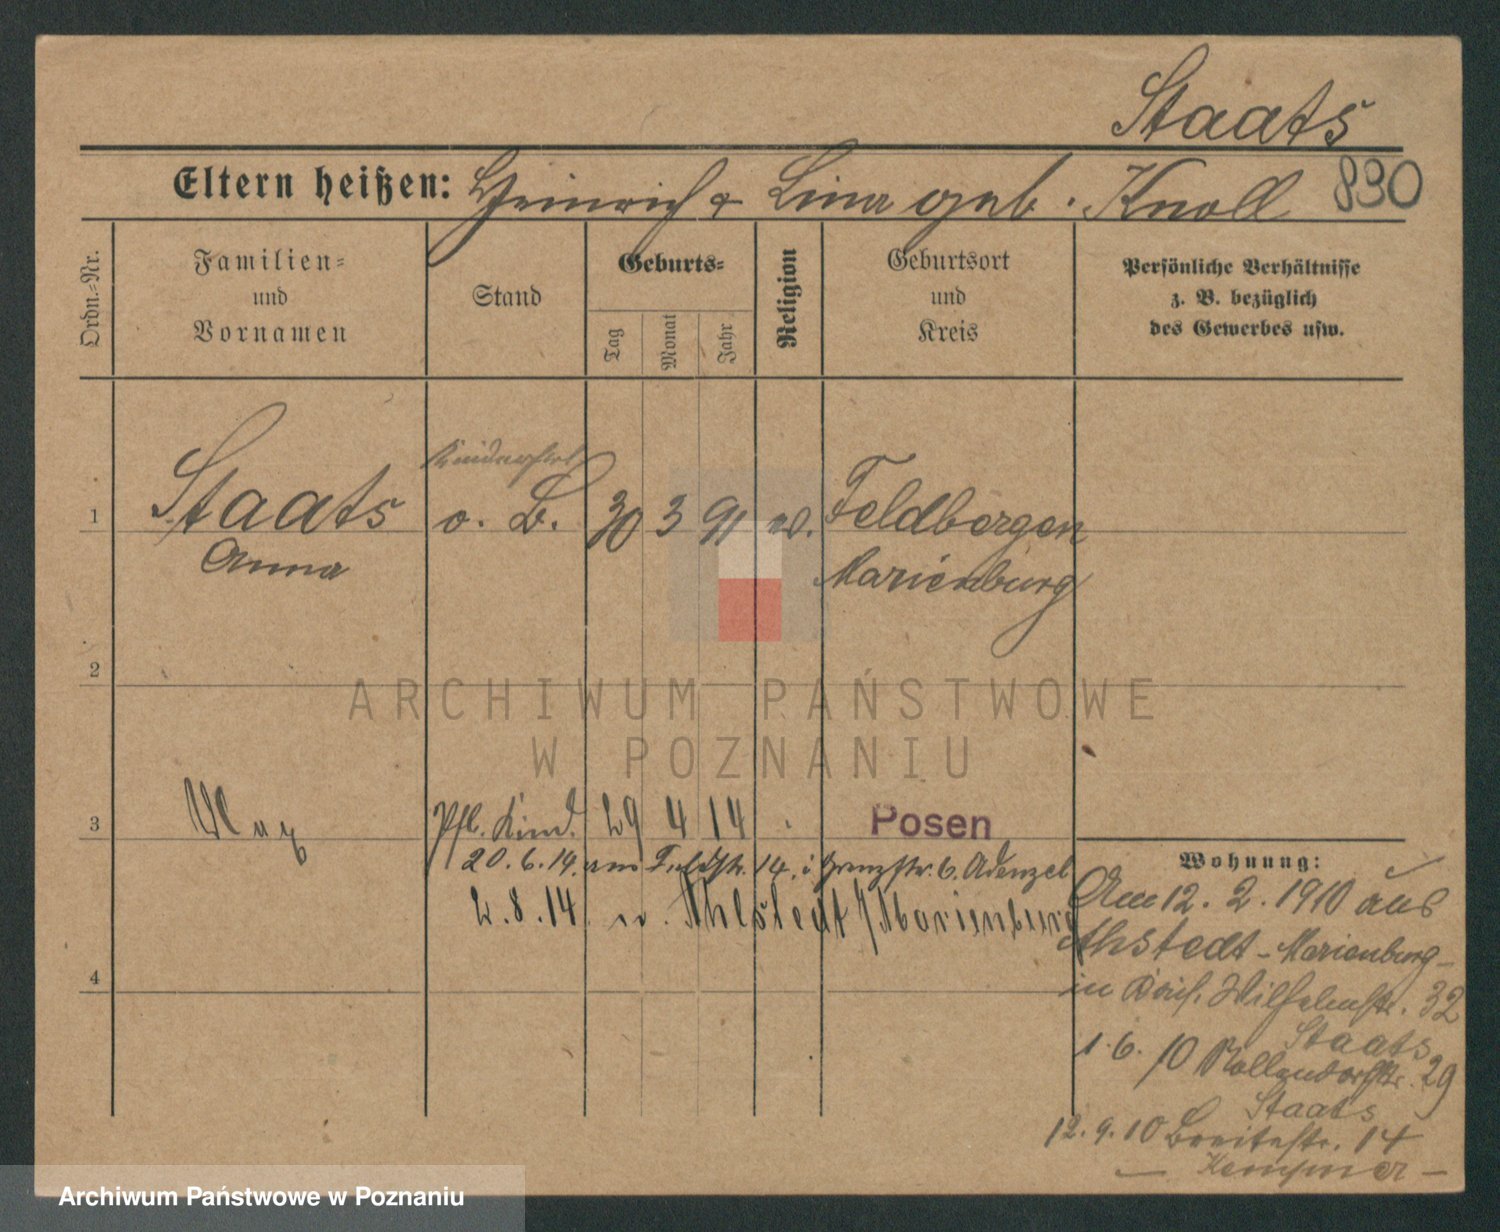 Staats
Eltern heißen: Heinrich & Lina geb. Knoll 830
Ordn.-Nr.
Familien-
und
Vornamen
Stand
Geburts-
Tag
Monat
Jahr
Religion
Geburtsort
und
Kreis
Persönliche Verhältnisse
z. B. bezüglich
des Gewerbes usw.
1 Staats o. B. 30 3 91 Feldbergen
Anna Marienburg
2
ARCHIWUM PAŃSTWOWE
W POZNANIU
3 Max Pfl. Kind. 29 4 14 Posen
20.6.14. am Feldstr. 14. i Grenzstr. 6. Adenzel
2.8.14. n. Ahlstedt / Marienburg
Wohnung:
Am 12. 2. 1910 aus
Ahstedt - Marienburg -
in Wilhelmstr. 32
Staats
1.6.10 Nollendorfstr. 29
Staats
12.9.10 Breitestr. 14
— Kempner —
4
Archiwum Państwowe w Poznaniu